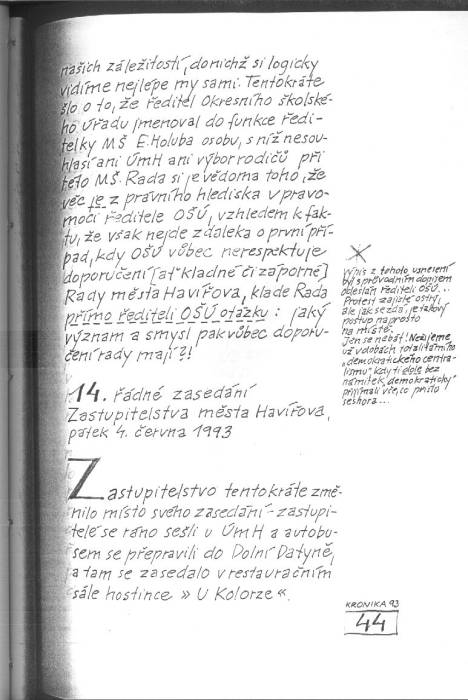 našich záležitostí, do nichž si logicky
vidíme nejlépe my sami. Tentokráte
šlo o to, že ředitel Okresního školské-
ho úřadu jmenoval do funkce ředi-
telky MŠ E. Holuba osobu, s níž nesou-
hlasí ani ÚmH ani výbor rodičů při
této MŠ. Rada si je vědoma toho, že
věc je z právního hlediska v pravo-
moci ředitele OŠÚ, vzhledem k fak-
tu, že však nejde zdaleka o první pří-
pad, kdy OŠÚ vůbec nerespektuje
doporučení [ať kladné či záporné]
Rady města Havířova, klade Rada
přímo řediteli OŠÚ otázku: jaký
význam a smysl pak vůbec doporu-
čení rady mají?!
14. řádné zasedání
Zastupitelstva města Havířova,
pátek 4. června 1993
Zastupitelstvo tentokráte změ-
nilo místo svého zasedání - zastupi-
telé se ráno sešli u ÚmH a autobu-
sem se přepravili do Dolní Datyně,
a tam se zasedalo v restauračním
sále hostince » U Kolorze «.
Výpis z tohoto usnesení
byl s průvodním dopisem
odeslán řediteli OŠÚ...
Protest zajisté ostrý,
ale jak se zdá, je takový
postup naprosto
na místě.
Jen se nebát! Nežijeme
už v dobách totalitního
„demokratického centra-
lismu" kdy ti dole bez
námitek „demokraticky"
přijímali vše, co přišlo
seshora...
KRONIKA 93
44